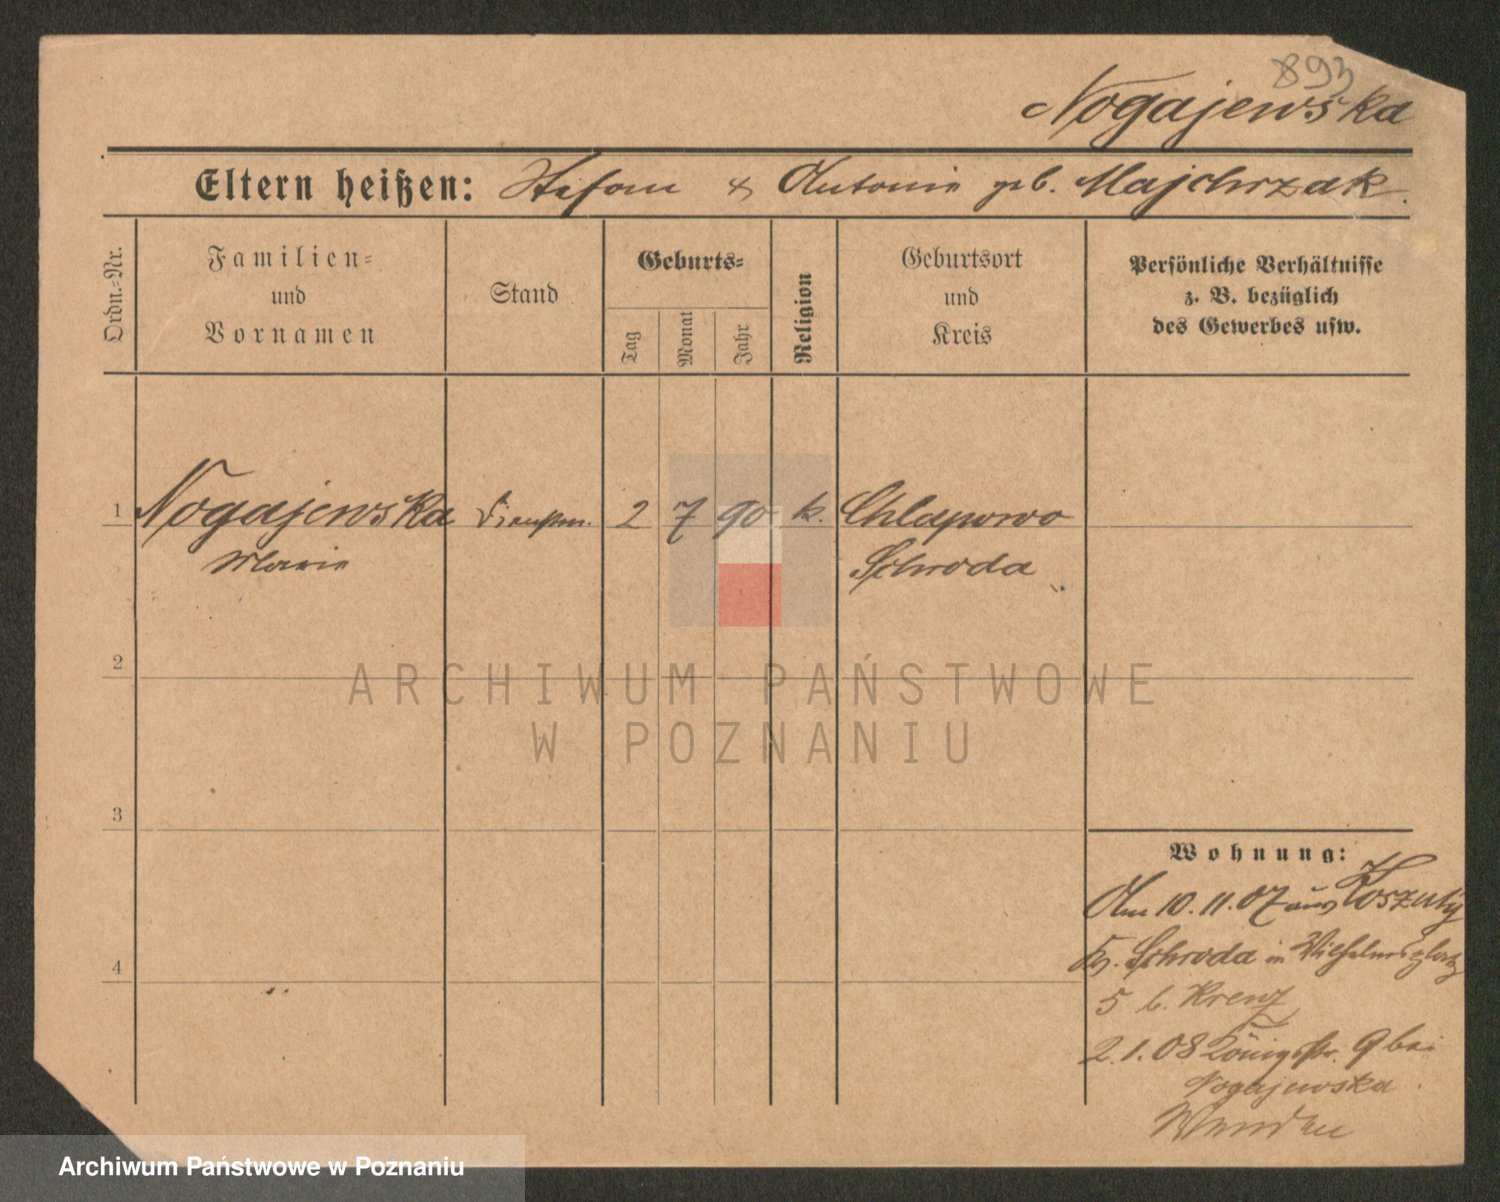 893
Nogajewska
Eltern heißen: Stefan & Antonie geb. Majchrzak.
Ordn.-Nr.
Familien-
und
Vornamen
Stand
Geburts-
Tag
Monat
Jahr
Religion
Geburtsort
und
Kreis
Persönliche Verhältnisse
z. B. bezüglich
des Gewerbes usw.
1 Nogajewska 2 7 90 k. Chlapowo
Marie Schroda
2
3
4
Wohnung:
Am 10.11.07 aus Koszuty
Kr. Schroda in Wilhelmsplatz
5 b. Krenz
2.1.08 Königstr. 9 bei
Nogajewska
ARCHIWUM PAŃSTWOWE
W POZNANIU
Archiwum Państwowe w Poznaniu